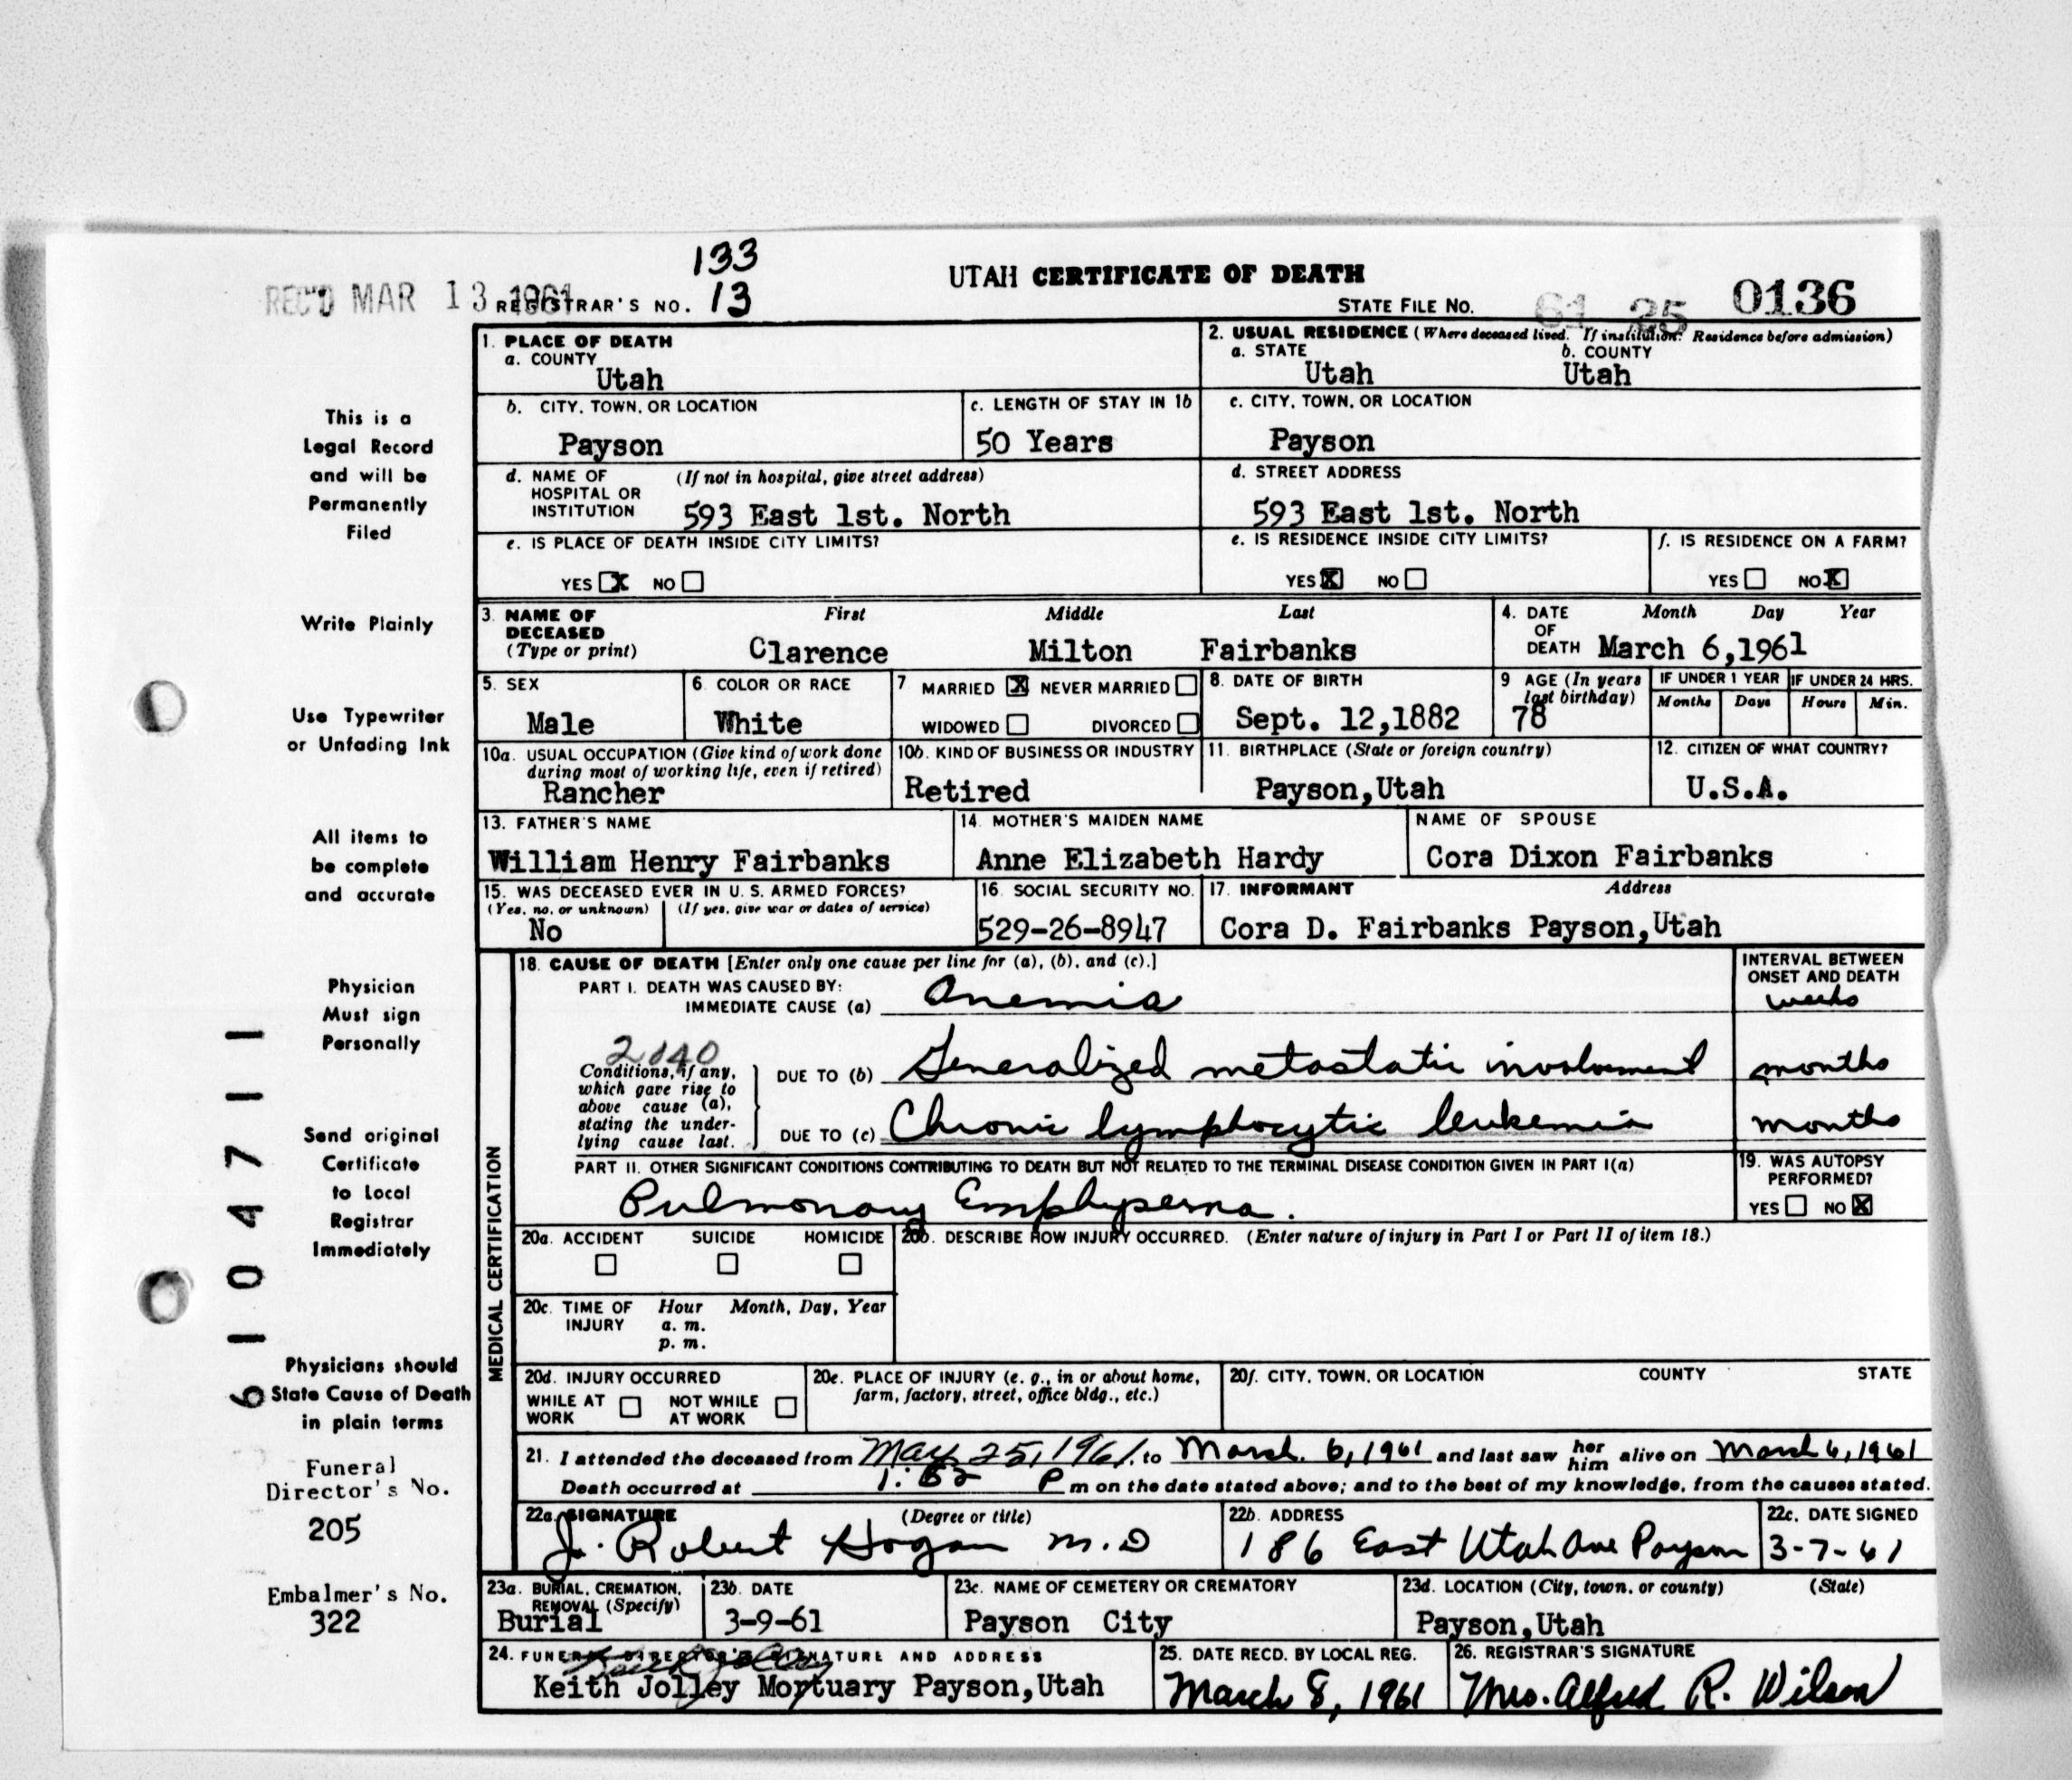 133
UTAH CERTIFICATE OF DEATH
REC'D MAR 13 1961 REGISTRAR'S NO. 13 STATE FILE NO. 61 25 0136
1. PLACE OF DEATH
a. COUNTY
Utah
2. USUAL RESIDENCE (Where deceased lived. If institution: Residence before admission)
a. STATE b. COUNTY
Utah Utah
b. CITY, TOWN, OR LOCATION
Payson
c. LENGTH OF STAY IN 1b
50 Years
c. CITY, TOWN, OR LOCATION
Payson
d. NAME OF (If not in hospital, give street address)
HOSPITAL OR
INSTITUTION 593 East 1st. North
d. STREET ADDRESS
593 East 1st. North
e. IS PLACE OF DEATH INSIDE CITY LIMITS?
YES X NO
e. IS RESIDENCE INSIDE CITY LIMITS?
YES X NO
f. IS RESIDENCE ON A FARM?
YES NO X
3. NAME OF DECEASED (Type or print)
First Middle Last
Clarence Milton Fairbanks
4. DATE OF DEATH Month Day Year
March 6,1961
5. SEX
Male
6. COLOR OR RACE
White
7 MARRIED X NEVER MARRIED
WIDOWED DIVORCED
8. DATE OF BIRTH
Sept. 12,1882
9 AGE (In years last birthday)
78
IF UNDER 1 YEAR
Months Days
IF UNDER 24 HRS.
Hours Min.
10a. USUAL OCCUPATION (Give kind of work done
during most of working life, even if retired)
Rancher
10b. KIND OF BUSINESS OR INDUSTRY
Retired
11. BIRTHPLACE (State or foreign country)
Payson,Utah
12. CITIZEN OF WHAT COUNTRY?
U.S.A.
13. FATHER'S NAME
William Henry Fairbanks
14. MOTHER'S MAIDEN NAME
Anne Elizabeth Hardy
NAME OF SPOUSE
Cora Dixon Fairbanks
15. WAS DECEASED EVER IN U. S. ARMED FORCES?
(Yes, no, or unknown) (If yes, give war or dates of service)
No
16. SOCIAL SECURITY NO.
529-26-8947
17. INFORMANT Address
Cora D. Fairbanks Payson,Utah
MEDICAL CERTIFICATION
18. CAUSE OF DEATH [Enter only one cause per line for (a), (b), and (c).]
PART I. DEATH WAS CAUSED BY:
IMMEDIATE CAUSE (a) Anemia
INTERVAL BETWEEN
ONSET AND DEATH
weeks
2040
Conditions, if any,
which gave rise to
above cause (a),
stating the under-
lying cause last.
DUE TO (b) Generalized metastatic involvement months
DUE TO (c) Chronic lymphocytic leukemia months
PART II. OTHER SIGNIFICANT CONDITIONS CONTRIBUTING TO DEATH BUT NOT RELATED TO THE TERMINAL DISEASE CONDITION GIVEN IN PART I(a)
Pulmonary Emphysema.
19. WAS AUTOPSY
PERFORMED?
YES NO X
20a. ACCIDENT SUICIDE HOMICIDE
20b. DESCRIBE HOW INJURY OCCURRED. (Enter nature of injury in Part I or Part II of item 18.)
20c. TIME OF INJURY Hour Month, Day, Year
a. m.
p. m.
20d. INJURY OCCURRED
WHILE AT WORK NOT WHILE AT WORK
20e. PLACE OF INJURY (e. g., in or about home,
farm, factory, street, office bldg., etc.)
20f. CITY, TOWN, OR LOCATION COUNTY STATE
21. I attended the deceased from May 25, 1961. to March. 6, 1961 and last saw her him alive on March 6, 1961
Death occurred at 1:52 P m on the date stated above; and to the best of my knowledge, from the causes stated.
22a. SIGNATURE (Degree or title)
J. Robert Hogan M.D
22b. ADDRESS
186 East Utah Ave Payson
22c. DATE SIGNED
3-7-61
23a. BURIAL, CREMATION,
REMOVAL (Specify)
Burial
23b. DATE
3-9-61
23c. NAME OF CEMETERY OR CREMATORY
Payson City
23d. LOCATION (City, town, or county) (State)
Payson,Utah
24. FUNERAL DIRECTOR'S SIGNATURE AND ADDRESS
Keith Jolley
Keith Jolley Mortuary Payson,Utah
25. DATE RECD. BY LOCAL REG.
March 8, 1961
26. REGISTRAR'S SIGNATURE
Mrs. Alfred R. Wilson
This is a
Legal Record
and will be
Permanently
Filed
Write Plainly
Use Typewriter
or Unfading Ink
All items to
be complete
and accurate
Physician
Must sign
Personally
Send original
Certificate
to Local
Registrar
Immediately
Physicians should
State Cause of Death
in plain terms
Funeral
Director's No.
205
Embalmer's No.
322
6104711